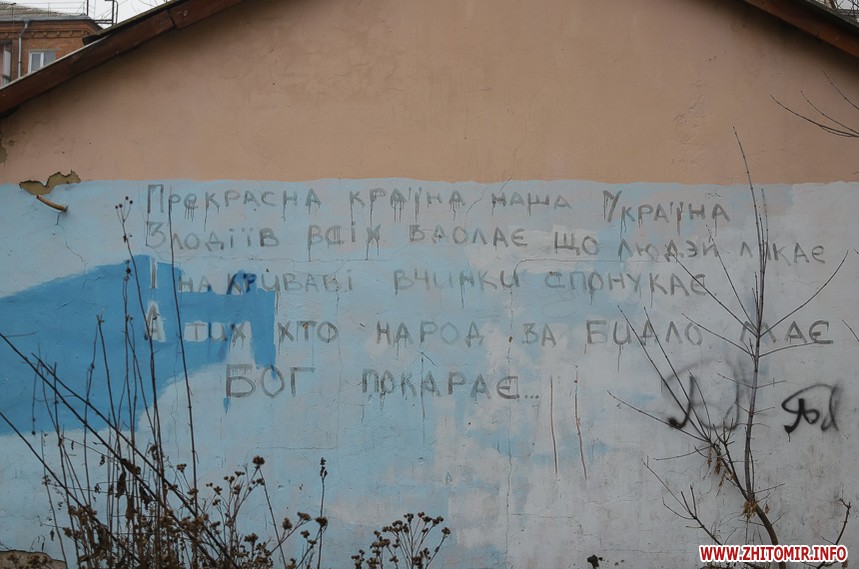 Прекрасна країна наша Україна
Злодіїв всіх ваолає що людэй лякає
І на криваві вчинки спонукає
А тих хто народ за бидло має
Бог покарає...
WWW.ZHITOMIR.INFO